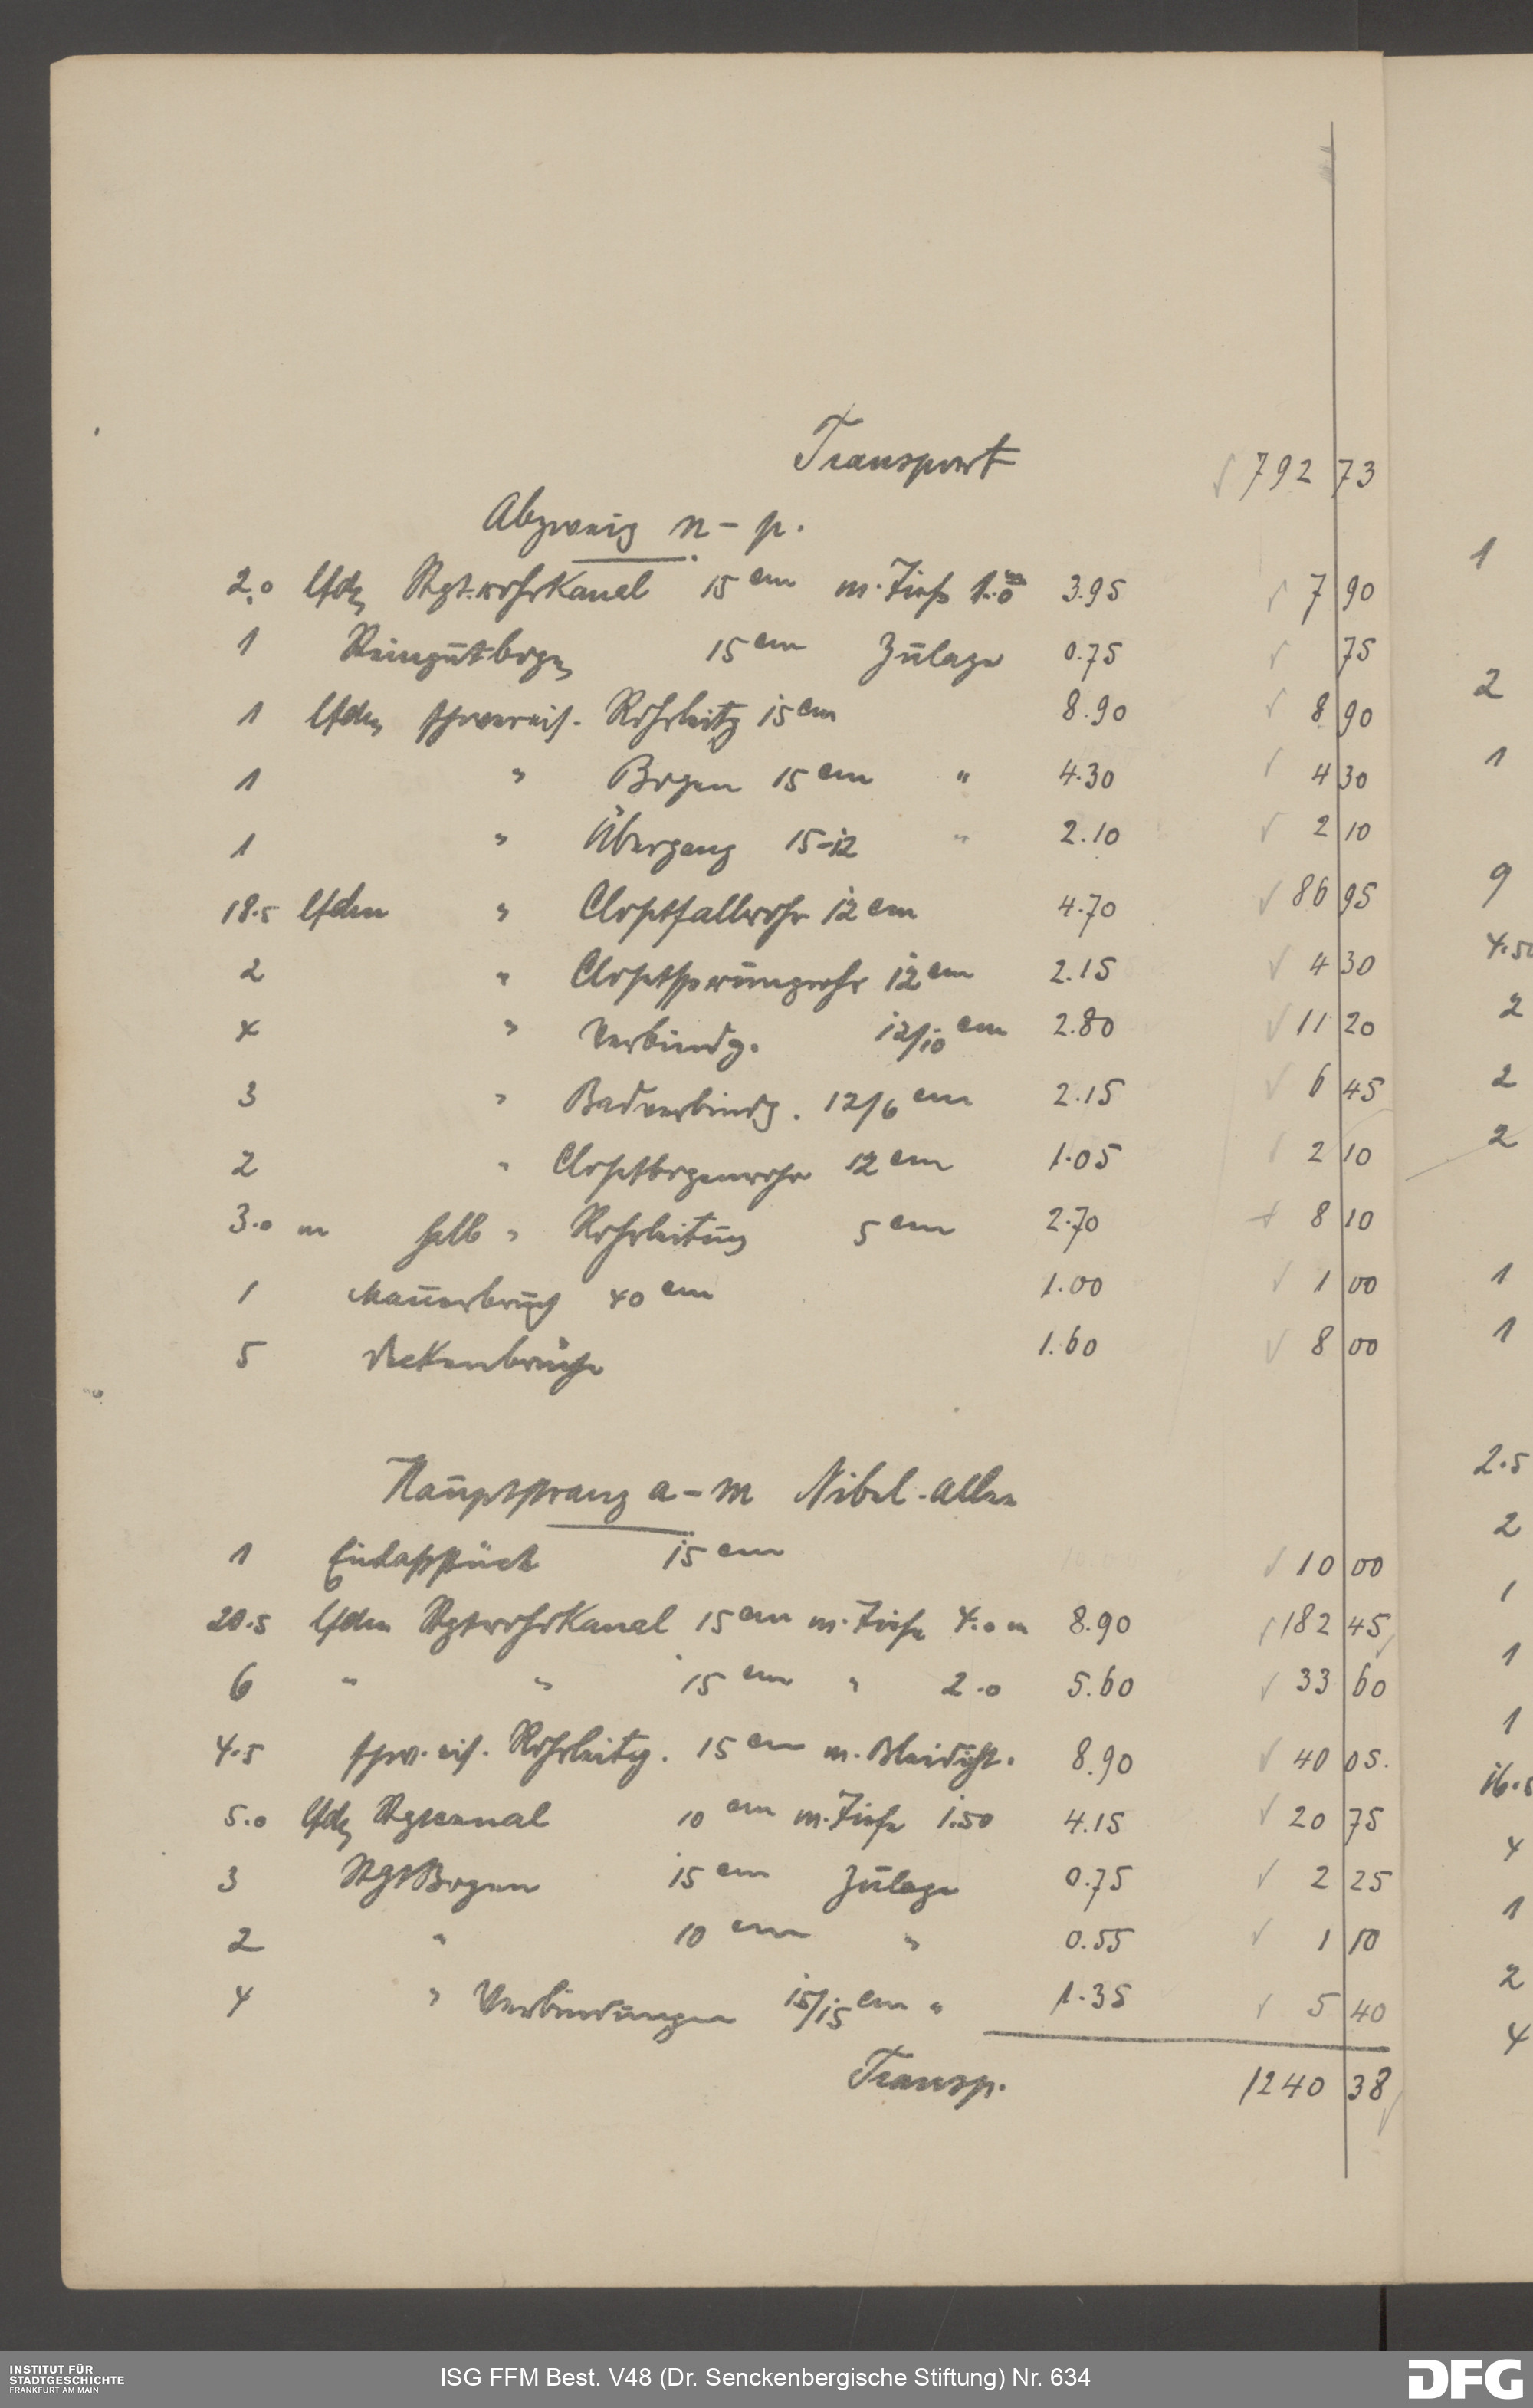 Transport 792 73
Abzweig n – p.
2.0 lfdm Stgt.rohrkanal 15 cm m. Tiefe 1.0 m 3.95 7 90
1 Steingutbogen 15 cm Zulage 0.75 75
1 lfdm schwereis. Rohrleitg 15 cm 8.90 8 90
1 " Bogen 15 cm " 4.30 4 30
1 " Übergang 15–12 " 2.10 2 10
18.5 lfdm " Closetfallrohr 12 cm 4.70 86 95
2 " Closetsprungrohr 12 cm 2.15 4 30
4 " Verbindg. 12/10 cm 2.80 11 20
3 " Badverbindg. 12/6 cm 2.15 6 45
2 " Closetbogenrohr 12 cm 1.05 2 10
3.0 m halb " Rohrleitung 5 cm 2.70 8 10
1 Mauerbruch 40 cm 1.00 1 00
5 Deckenbrüche 1.60 8 00
Hauptstrang a – m Nibel.allee
1 Einlaßstück 15 cm 10 00
20.5 lfdm Stgtrohrkanal 15 cm m. Tiefe 4.0 m 8.90 182 45
6 " " 15 cm " 2.0 5.60 33 60
4.5 schw. eis. Rohrleitg. 15 cm m. Bleidicht. 8.90 40 05.
5.0 lfdm Stgtkanal 10 cm m. Tiefe 1.50 4.15 20 75
3 Stgt Bogen 15 cm Zulage 0.75 2 25
2 " 10 cm " 0.55 1 10
4 " Verbindungen 15/15 cm " 1.35 5 40
Transp. 1240 38
1
2
1
9
4.50
2
2
2
1
1
2.5
2
1
1
1
16.5
4
1
2
4
INSTITUT FÜR
STADTGESCHICHTE
FRANKFURT AM MAIN
ISG FFM Best. V48 (Dr. Senckenbergische Stiftung) Nr. 634
DFG